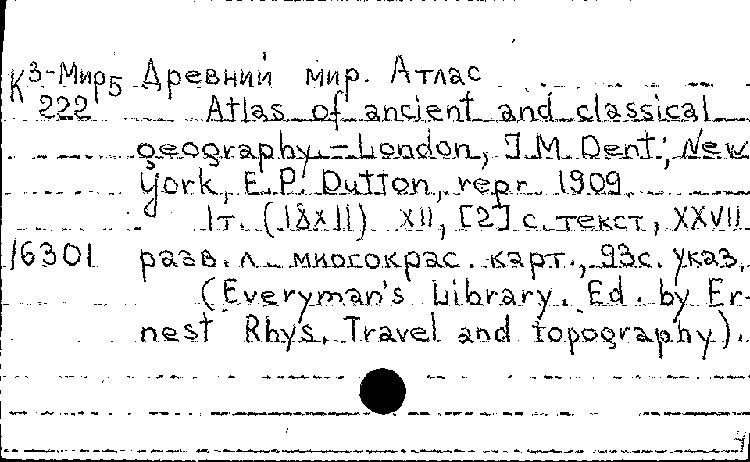 К 3-Мир5 Древний мир. Атлас
222 Atlas of ancient and classical
geography. – London, J.M. Dent; New
York, E.P. Dutton, repr. 1909.
1т. (18x11) XII, [2] с. текст, XXVII
16301 разв. л. многокрас. карт., 93с. указ.
(Everyman's Library. Ed. by Er-
nest Rhys. Travel and topography).